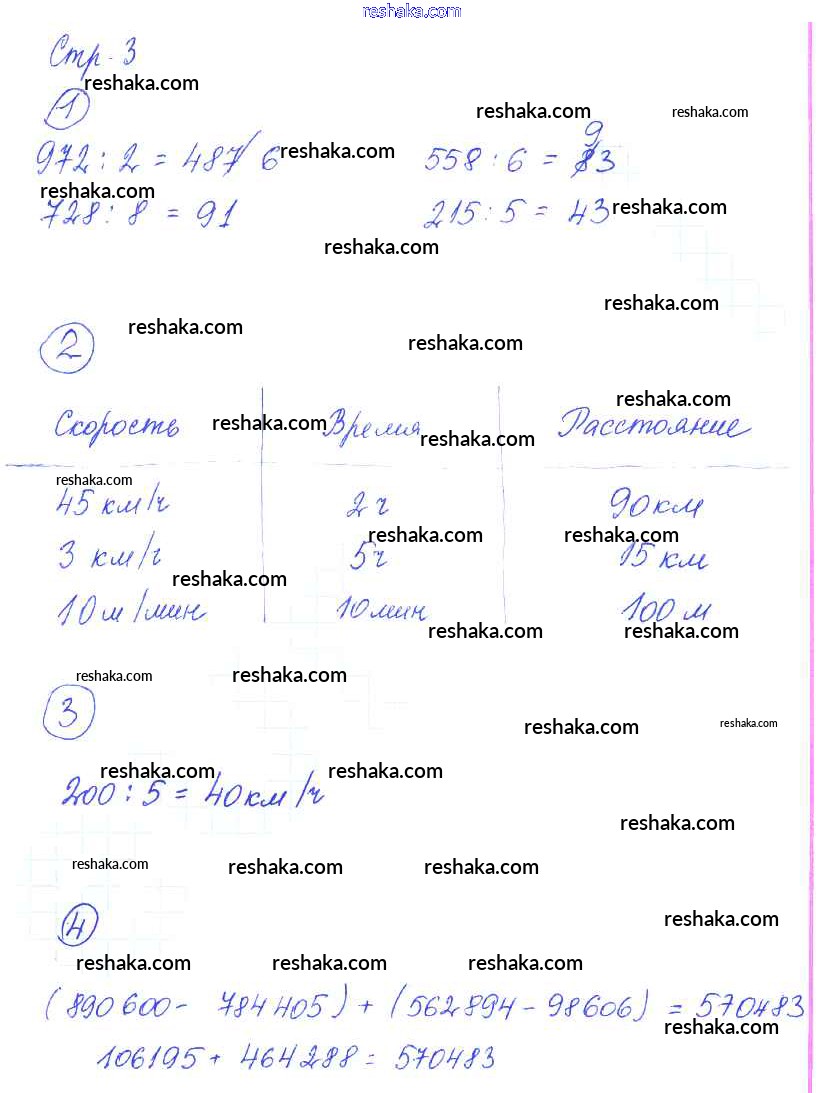 reshaka.com
Стр. 3
reshaka.com
1
reshaka.com reshaka.com
972 : 2 = 487/6 reshaka.com 558 : 6 = 93
reshaka.com
728 : 8 = 91 215 : 5 = 43 reshaka.com
reshaka.com
reshaka.com
2 reshaka.com reshaka.com
reshaka.com
Скорость reshaka.com Время reshaka.com Расстояние
reshaka.com
45 км/ч 2 ч 90 км
reshaka.com reshaka.com
3 км/ч 5 ч 15 км
reshaka.com
10 м/мин 10 мин 100 м
reshaka.com reshaka.com
reshaka.com reshaka.com
3 reshaka.com reshaka.com
reshaka.com reshaka.com
200 : 5 = 40 км/ч
reshaka.com
reshaka.com reshaka.com reshaka.com
4 reshaka.com
reshaka.com reshaka.com reshaka.com
(890 600 - 784 405) + (562 894 - 98 606) = 570 483
reshaka.com
106195 + 464 288 = 570483